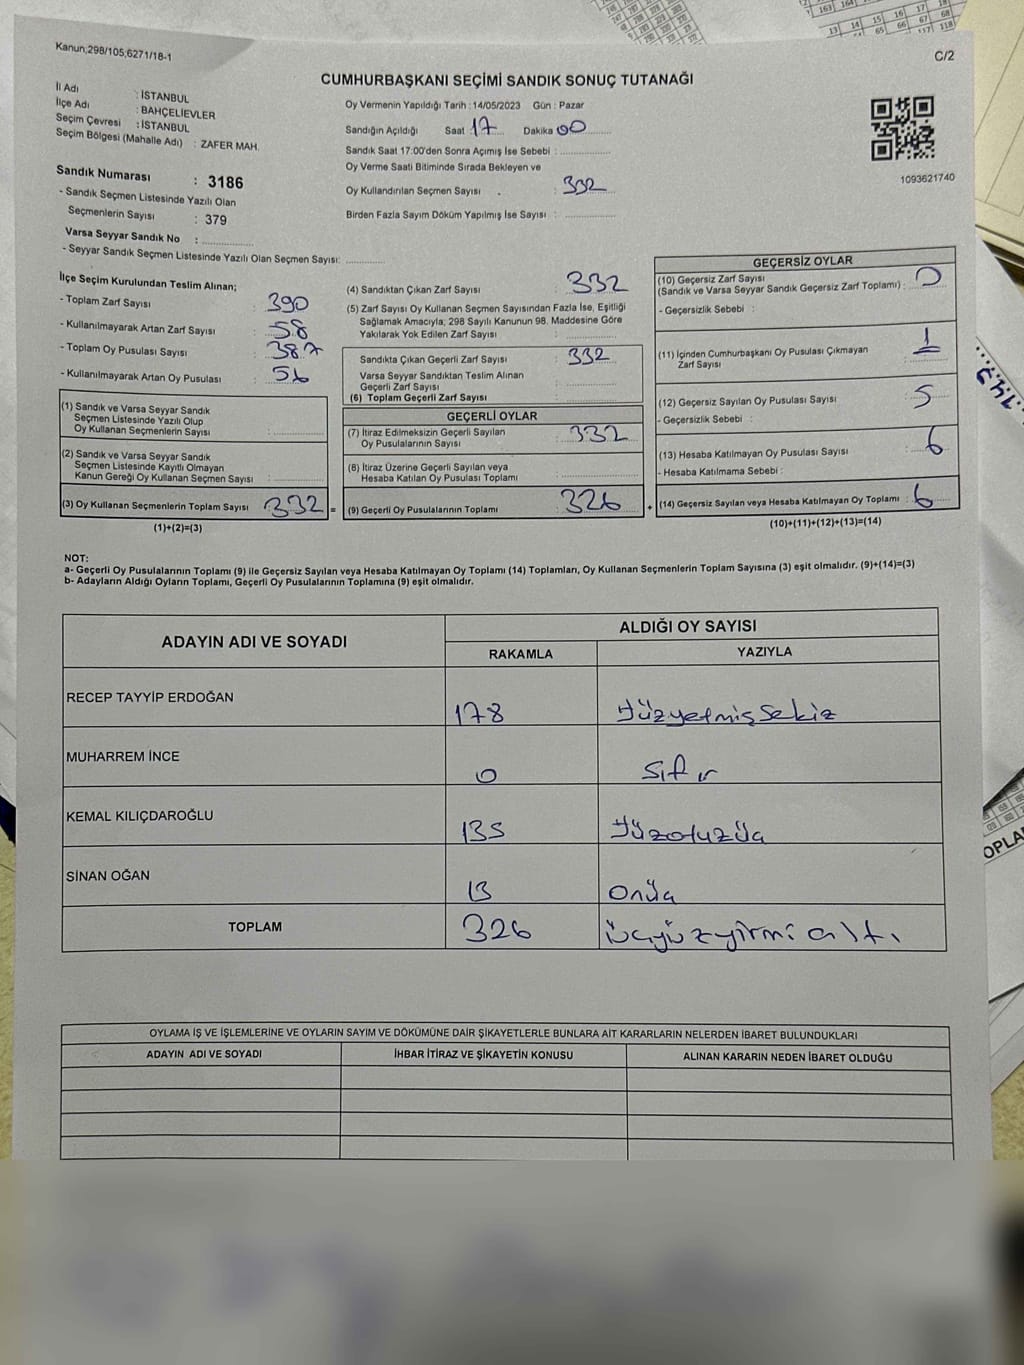 Kanun;298/105,6271/18-1
C/2
CUMHURBAŞKANI SEÇİMİ SANDIK SONUÇ TUTANAĞI
İl Adı : İSTANBUL
İlçe Adı : BAHÇELİEVLER
Seçim Çevresi : İSTANBUL
Seçim Bölgesi (Mahalle Adı) : ZAFER MAH.
Sandık Numarası : 3186
- Sandık Seçmen Listesinde Yazılı Olan
Seçmenlerin Sayısı : 379
Varsa Seyyar Sandık No :
- Seyyar Sandık Seçmen Listesinde Yazılı Olan Seçmen Sayısı:
Oy Vermenin Yapıldığı Tarih : 14/05/2023 Gün : Pazar
Sandığın Açıldığı Saat 17 Dakika 00
Sandık Saat 17:00'den Sonra Açımış İse Sebebi :
Oy Verme Saati Bitiminde Sırada Bekleyen ve
Oy Kullandırılan Seçmen Sayısı : 332
Birden Fazla Sayım Döküm Yapılmış İse Sayısı :
1093621740
İlçe Seçim Kurulundan Teslim Alınan;
- Toplam Zarf Sayısı : 390
- Kullanılmayarak Artan Zarf Sayısı : 58
- Toplam Oy Pusulası Sayısı : 387
- Kullanılmayarak Artan Oy Pusulası : 56
(1) Sandık ve Varsa Seyyar Sandık
Seçmen Listesinde Yazılı Olup
Oy Kullanan Seçmenlerin Sayısı :
(2) Sandık ve Varsa Seyyar Sandık
Seçmen Listesinde Kayıtlı Olmayan
Kanun Gereği Oy Kullanan Seçmen Sayısı :
(3) Oy Kullanan Seçmenlerin Toplam Sayısı : 332 =
(1)+(2)=(3)
(4) Sandıktan Çıkan Zarf Sayısı : 332
(5) Zarf Sayısı Oy Kullanan Seçmen Sayısından Fazla İse, Eşitliği
Sağlamak Amacıyla; 298 Sayılı Kanunun 98. Maddesine Göre
Yakılarak Yok Edilen Zarf Sayısı :
Sandıkta Çıkan Geçerli Zarf Sayısı : 332
Varsa Seyyar Sandıktan Teslim Alınan
Geçerli Zarf Sayısı :
(6) Toplam Geçerli Zarf Sayısı :
GEÇERLİ OYLAR
(7) İtiraz Edilmeksizin Geçerli Sayılan
Oy Pusulalarının Sayısı : 332
(8) İtiraz Üzerine Geçerli Sayılan veya
Hesaba Katılan Oy Pusulası Toplamı :
(9) Geçerli Oy Pusulalarının Toplamı : 326 +
GEÇERSİZ OYLAR
(10) Geçersiz Zarf Sayısı
(Sandık ve Varsa Seyyar Sandık Geçersiz Zarf Toplamı) : 0
- Geçersizlik Sebebi :
(11) İçinden Cumhurbaşkanı Oy Pusulası Çıkmayan
Zarf Sayısı : 1
(12) Geçersiz Sayılan Oy Pusulası Sayısı : 5
- Geçersizlik Sebebi :
(13) Hesaba Katılmayan Oy Pusulası Sayısı : 6
- Hesaba Katılmama Sebebi :
(14) Geçersiz Sayılan veya Hesaba Katılmayan Oy Toplamı : 6
(10)+(11)+(12)+(13)=(14)
NOT:
a- Geçerli Oy Pusulalarının Toplamı (9) ile Geçersiz Sayılan veya Hesaba Katılmayan Oy Toplamı (14) Toplamları, Oy Kullanan Seçmenlerin Toplam Sayısına (3) eşit olmalıdır. (9)+(14)=(3)
b- Adayların Aldığı Oyların Toplamı, Geçerli Oy Pusulalarının Toplamına (9) eşit olmalıdır.
ADAYIN ADI VE SOYADI
ALDIĞI OY SAYISI
RAKAMLA YAZIYLA
RECEP TAYYİP ERDOĞAN 178 Yüzyetmişsekiz
MUHARREM İNCE 0 Sıfır
KEMAL KILIÇDAROĞLU 135 Yüzotuz
SİNAN OĞAN 13 Onüç
TOPLAM 326 üçyüzyirmi altı
OYLAMA İŞ VE İŞLEMLERİNE VE OYLARIN SAYIM VE DÖKÜMÜNE DAİR ŞİKAYETLERLE BUNLARA AİT KARARLARIN NELERDEN İBARET BULUNDUKLARI
ADAYIN ADI VE SOYADI İHBAR İTİRAZ VE ŞİKAYETİN KONUSU ALINAN KARARIN NEDEN İBARET OLDUĞU